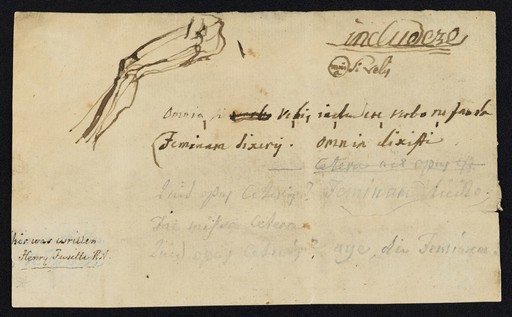 includere
si velis
Omnia si velis includere verbo nefanda
Feminam dixeris. Omnia dixisti
Cetera opus
Quid opus Ceteris? Feminam
Fac missa Cetera
Quid opus Ceteris? age, dic Feminam.
This was written
Henry Fuseli R.A.